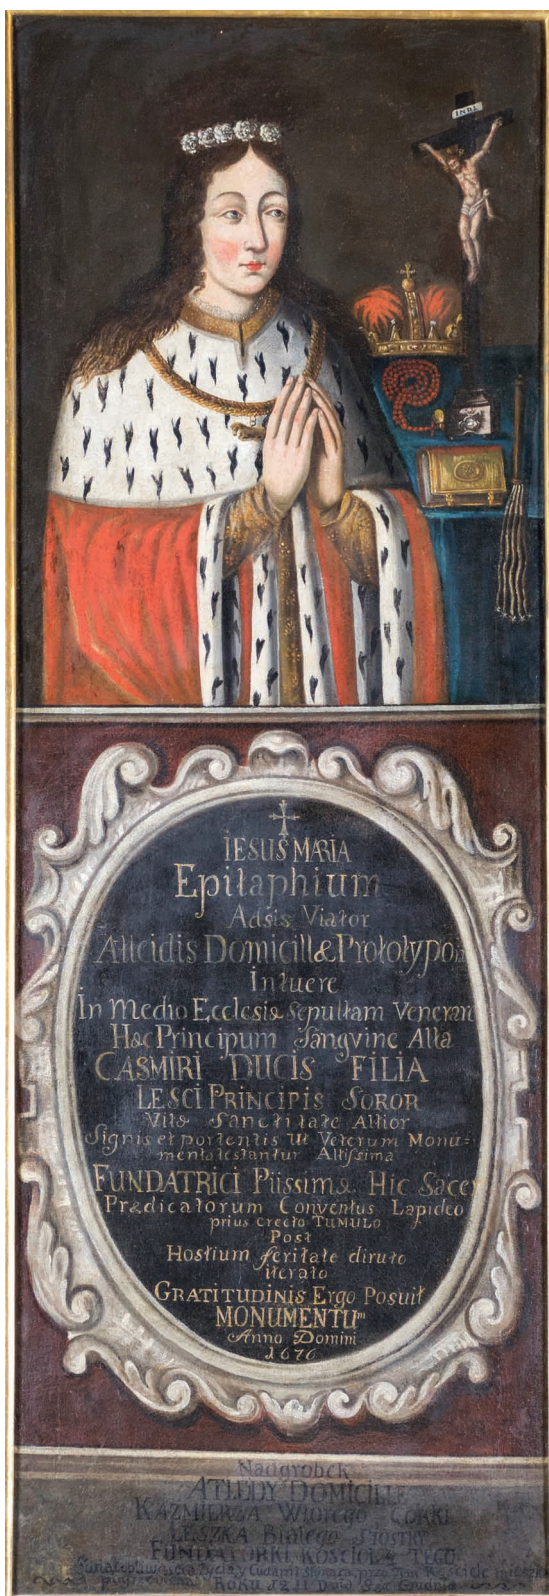 INRI
IESUS MARIA
Epitaphium
Adsis Viator
Domicillæ Prototypon
intuere
In Medio Ecclesiæ sepultam Venerare
Hæc Principum Sangvine Alta
CASMIRI DUCIS FILIA
LESCI PRINCIPIS SOROR
Vitæ Sanctitate Altior
Signis et portentis Ut Veterum Monu=
menta testantur Altissima
FUNDATRICI Piissimæ Hic Sacer
Prædicatorum Conventus Lapideo
prius erecto TUMULO
Post
Hostium feritate diruto
iterato
GRATITUDINIS Ergo Posuit
MONUMENTUm
Anno Domini
1676
Nadgrobek
DOMICILLE
KAZMIERZA Wtorego CORKI
LESZKA Białego SIOSTRY
FUNDATORKI KOSCIOŁA TEGO
ROKU 1211